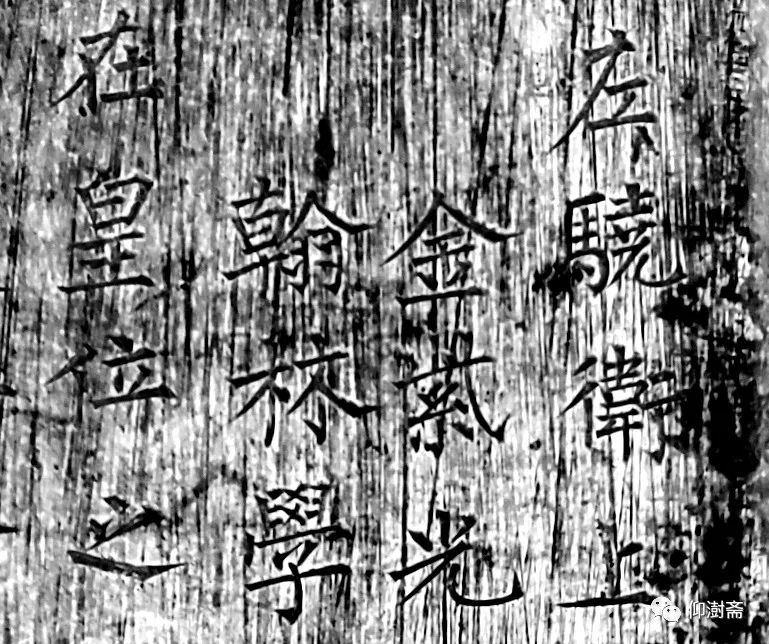 左驍衛上
金紫光
翰林學
在皇位之
仰澍斋